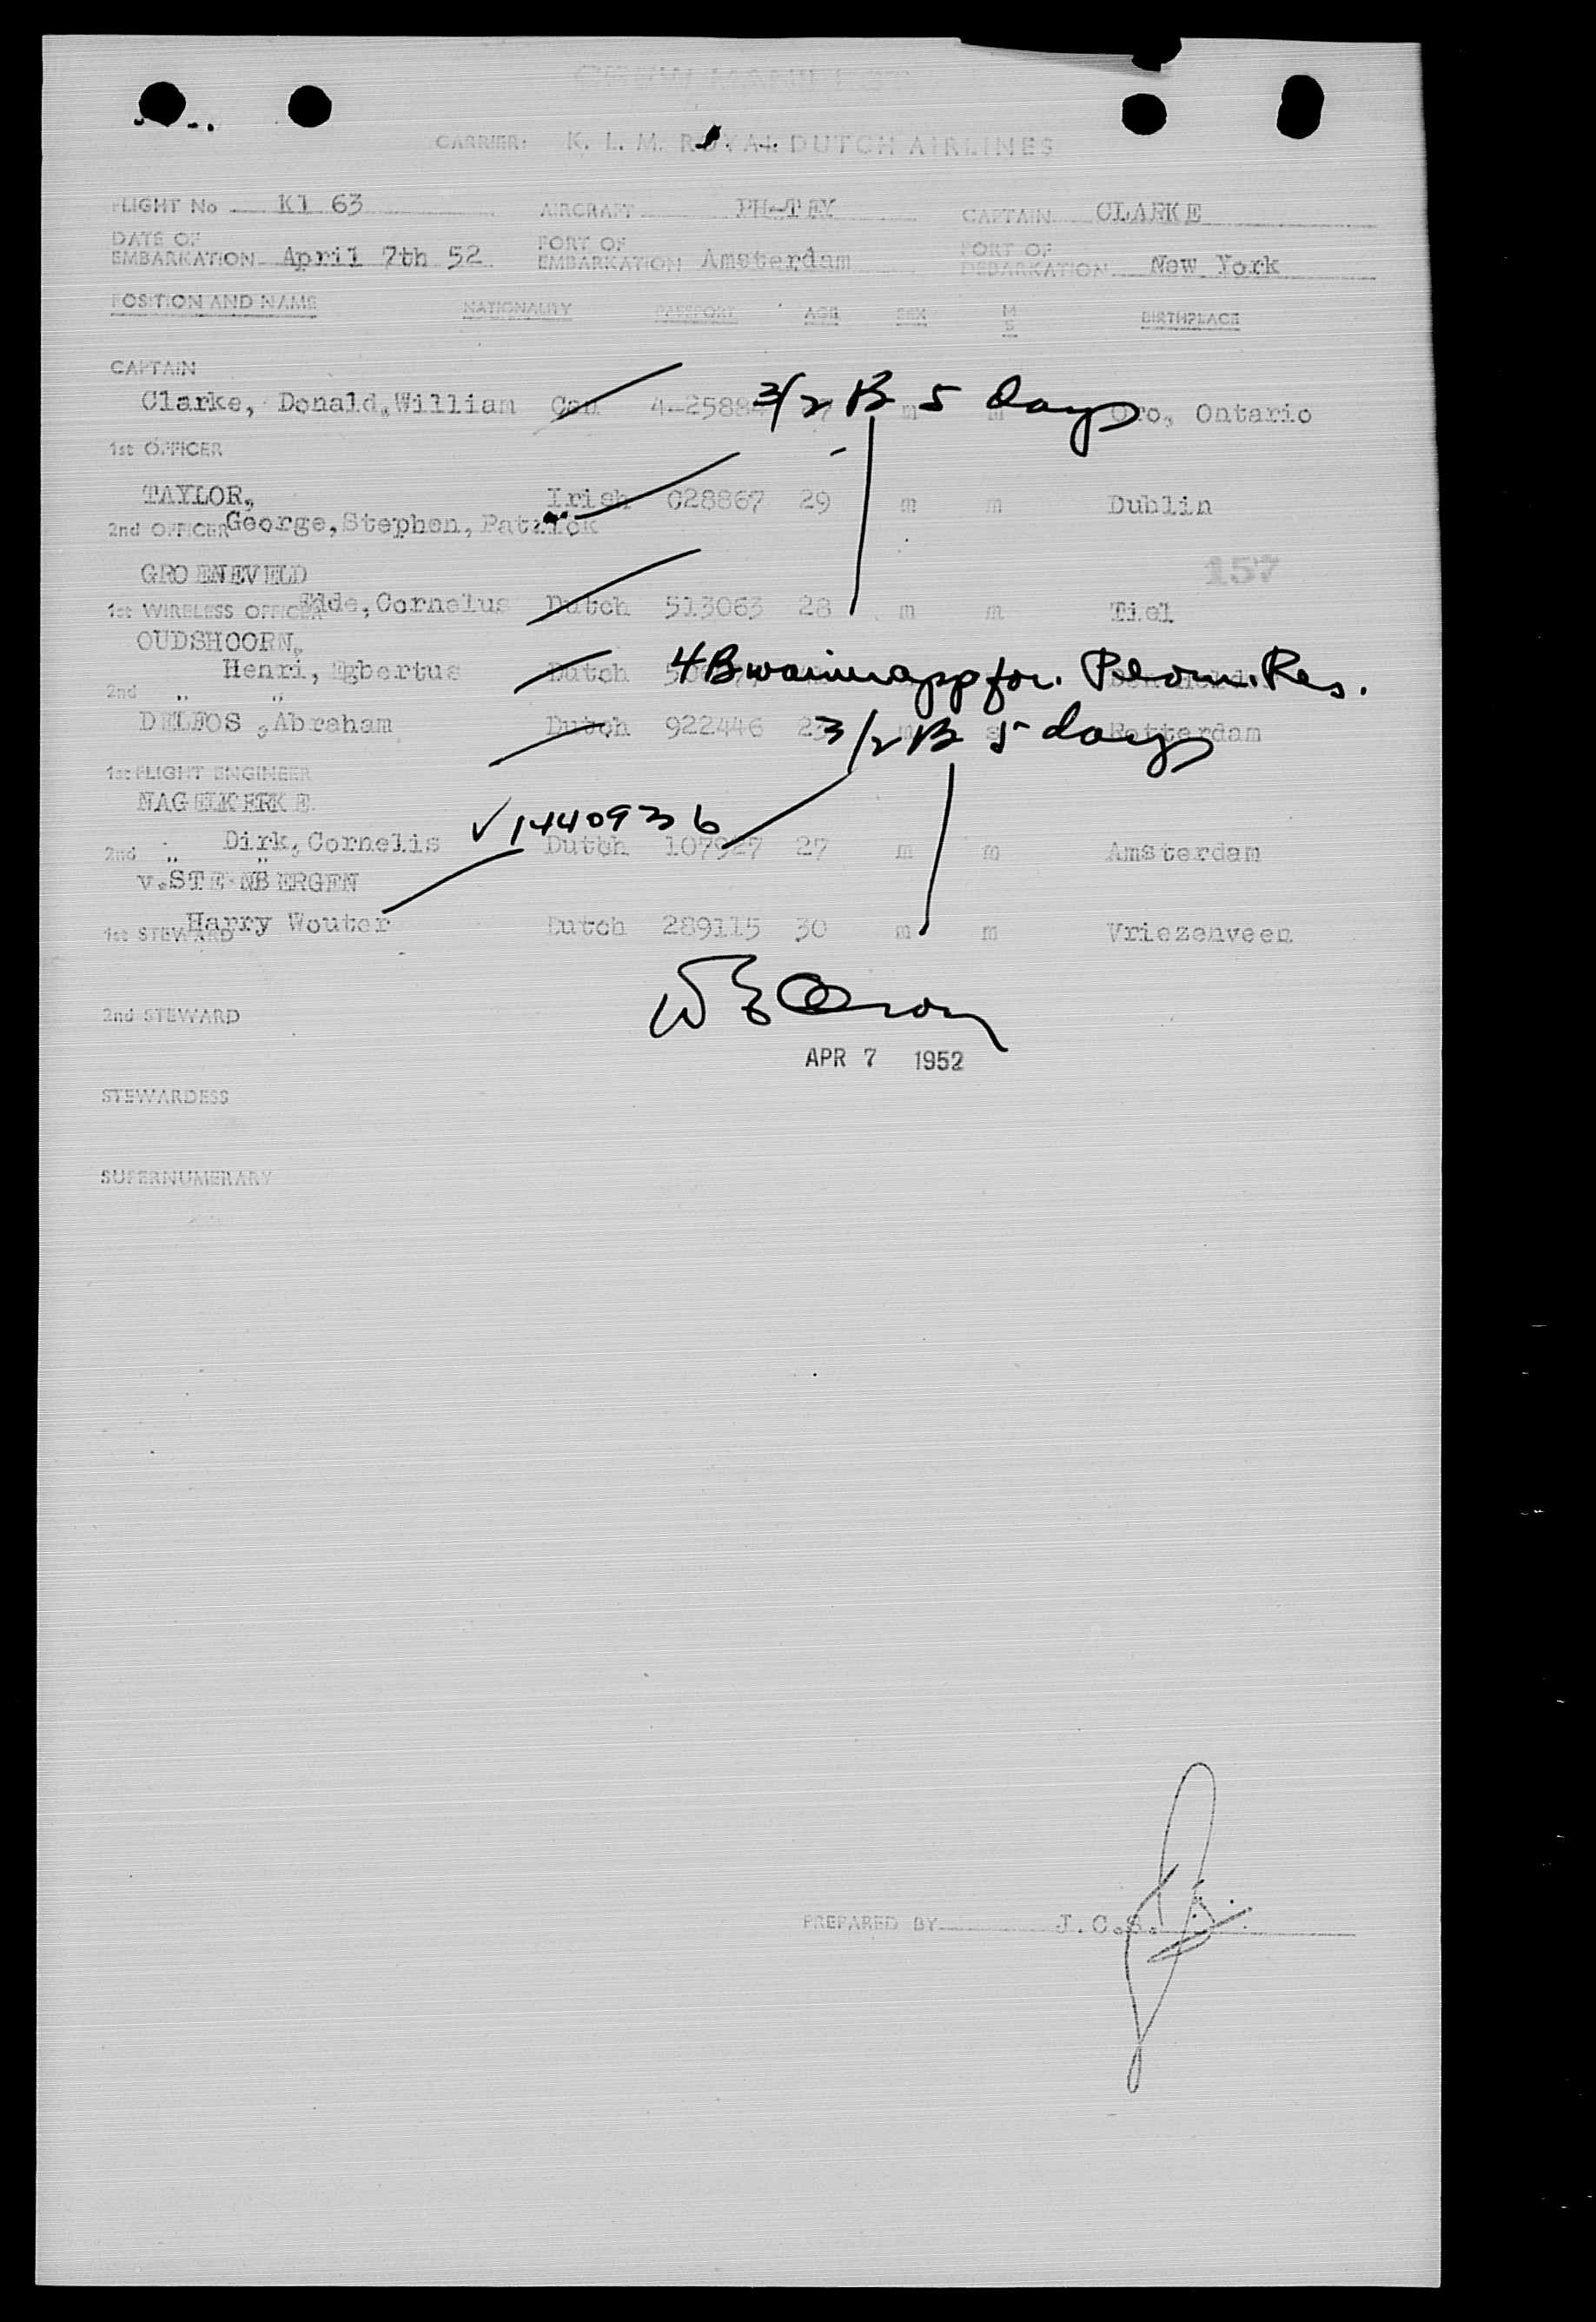 CREW MANIFEST
CARRIER: K. L. M. ROYAL DUTCH AIRLINES
FLIGHT No Kl 63 AIRCRAFT PH-TEY CAPTAIN CLARKE
DATE OF EMBARKATION April 7th 52 PORT OF EMBARKATION Amsterdam PORT OF DEBARKATION New York
POSITION AND NAME NATIONALITY PASSPORT AGE SEX M S BIRTHPLACE
CAPTAIN
Clarke, Donald,William Can 4-25884 m m Oro, Ontario
3/2 B 5 days
1st OFFICER
TAYLOR, Irish C28867 29 m m Dublin
2nd OFFICER George,Stephen,Patrick
157
GROENEVELD
1st WIRELESS OFFICER Elde,Cornelus Dutch 513063 28 m m Tiel
OUDSHOORN,
Henri, Egbertus Dutch
4B waiver app for. Res.
2nd " "
DELFOS ,Abraham Dutch 922446 23 m s Rotterdam
3/2 B 5 days
1st FLIGHT ENGINEER
NAGELKERKE
✓ 1440936
Dirk,Cornelis Dutch 107927 27 m m Amsterdam
2nd " "
v.STEENBERGEN
Harry Wouter Dutch 289115 30 m m Vriezenveen
1st STEWARD
2nd STEWARD
APR 7 1952
STEWARDESS
SUPERNUMERARY
PREPARED BY J.C.S.